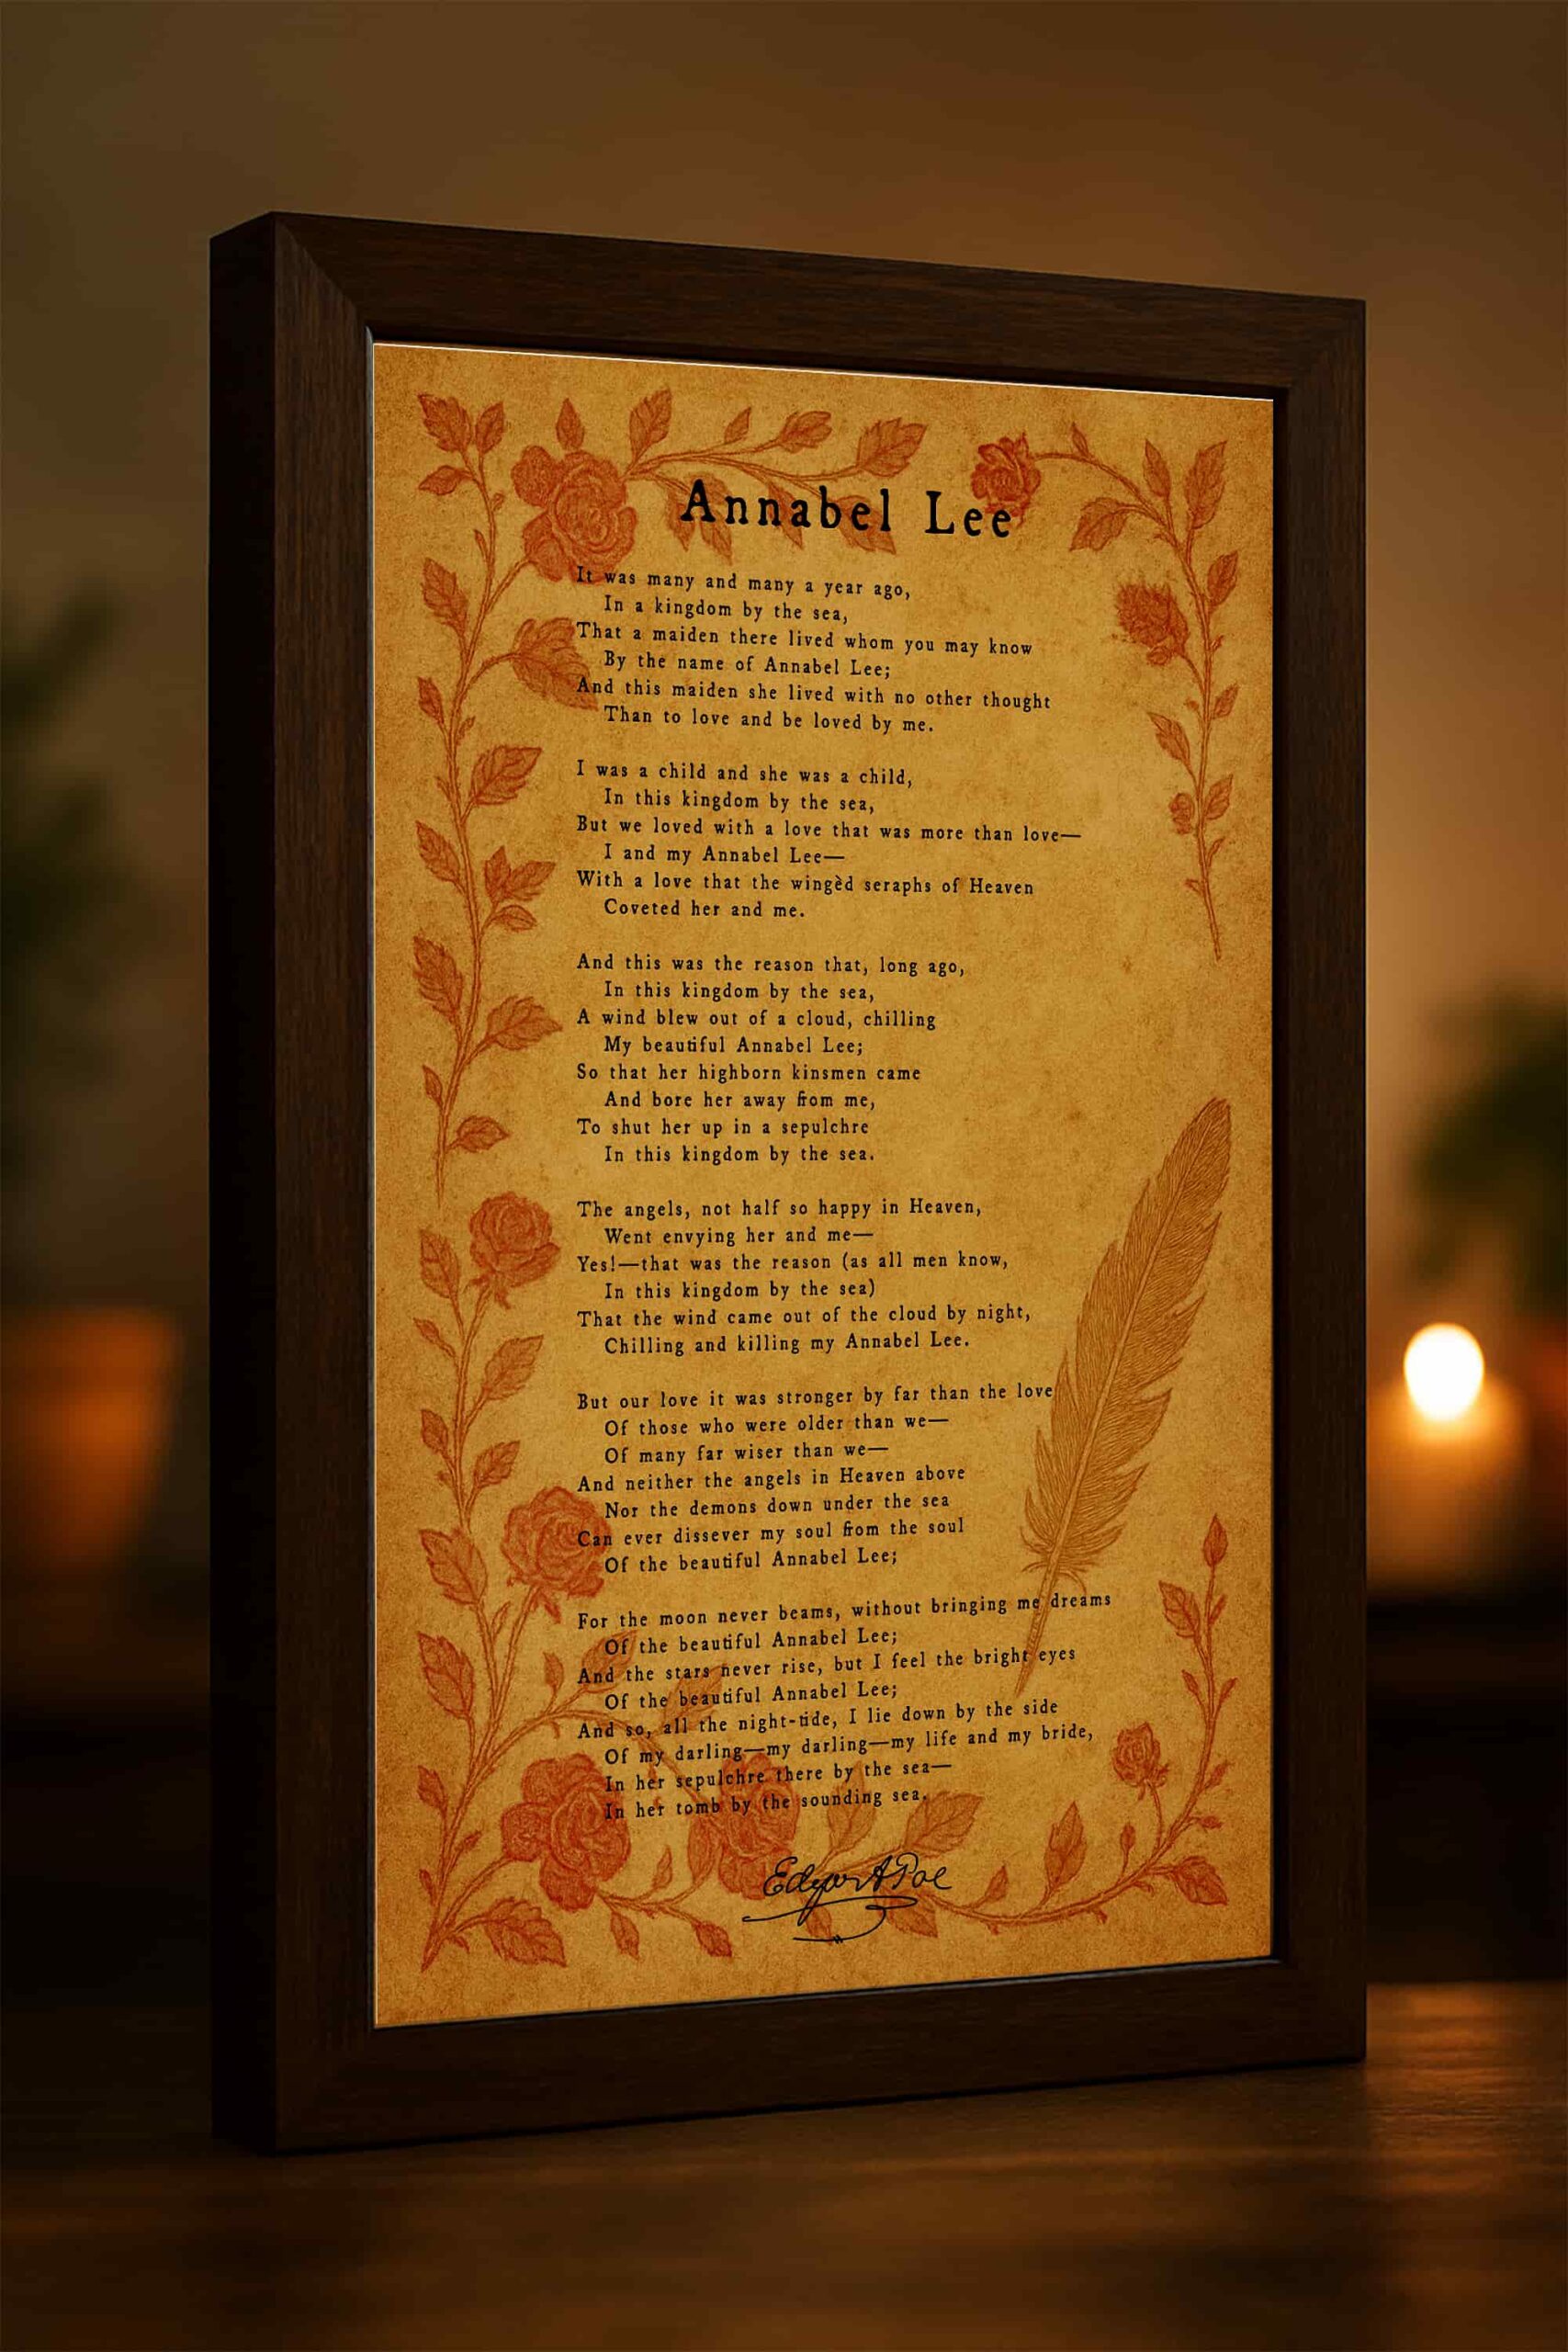 Annabel Lee
It was many and many a year ago,
In a kingdom by the sea,
That a maiden there lived whom you may know
By the name of Annabel Lee;
And this maiden she lived with no other thought
Than to love and be loved by me.
I was a child and she was a child,
In this kingdom by the sea,
But we loved with a love that was more than love—
I and my Annabel Lee—
With a love that the wingèd seraphs of Heaven
Coveted her and me.
And this was the reason that, long ago,
In this kingdom by the sea,
A wind blew out of a cloud, chilling
My beautiful Annabel Lee;
So that her highborn kinsmen came
And bore her away from me,
To shut her up in a sepulchre
In this kingdom by the sea.
The angels, not half so happy in Heaven,
Went envying her and me—
Yes!—that was the reason (as all men know,
In this kingdom by the sea)
That the wind came out of the cloud by night,
Chilling and killing my Annabel Lee.
But our love it was stronger by far than the love
Of those who were older than we—
Of many far wiser than we—
And neither the angels in Heaven above
Nor the demons down under the sea
Can ever dissever my soul from the soul
Of the beautiful Annabel Lee;
For the moon never beams, without bringing me dreams
Of the beautiful Annabel Lee;
And the stars never rise, but I feel the bright eyes
Of the beautiful Annabel Lee;
And so, all the night-tide, I lie down by the side
Of my darling—my darling—my life and my bride,
In her sepulchre there by the sea—
In her tomb by the sounding sea.
Edgar A Poe